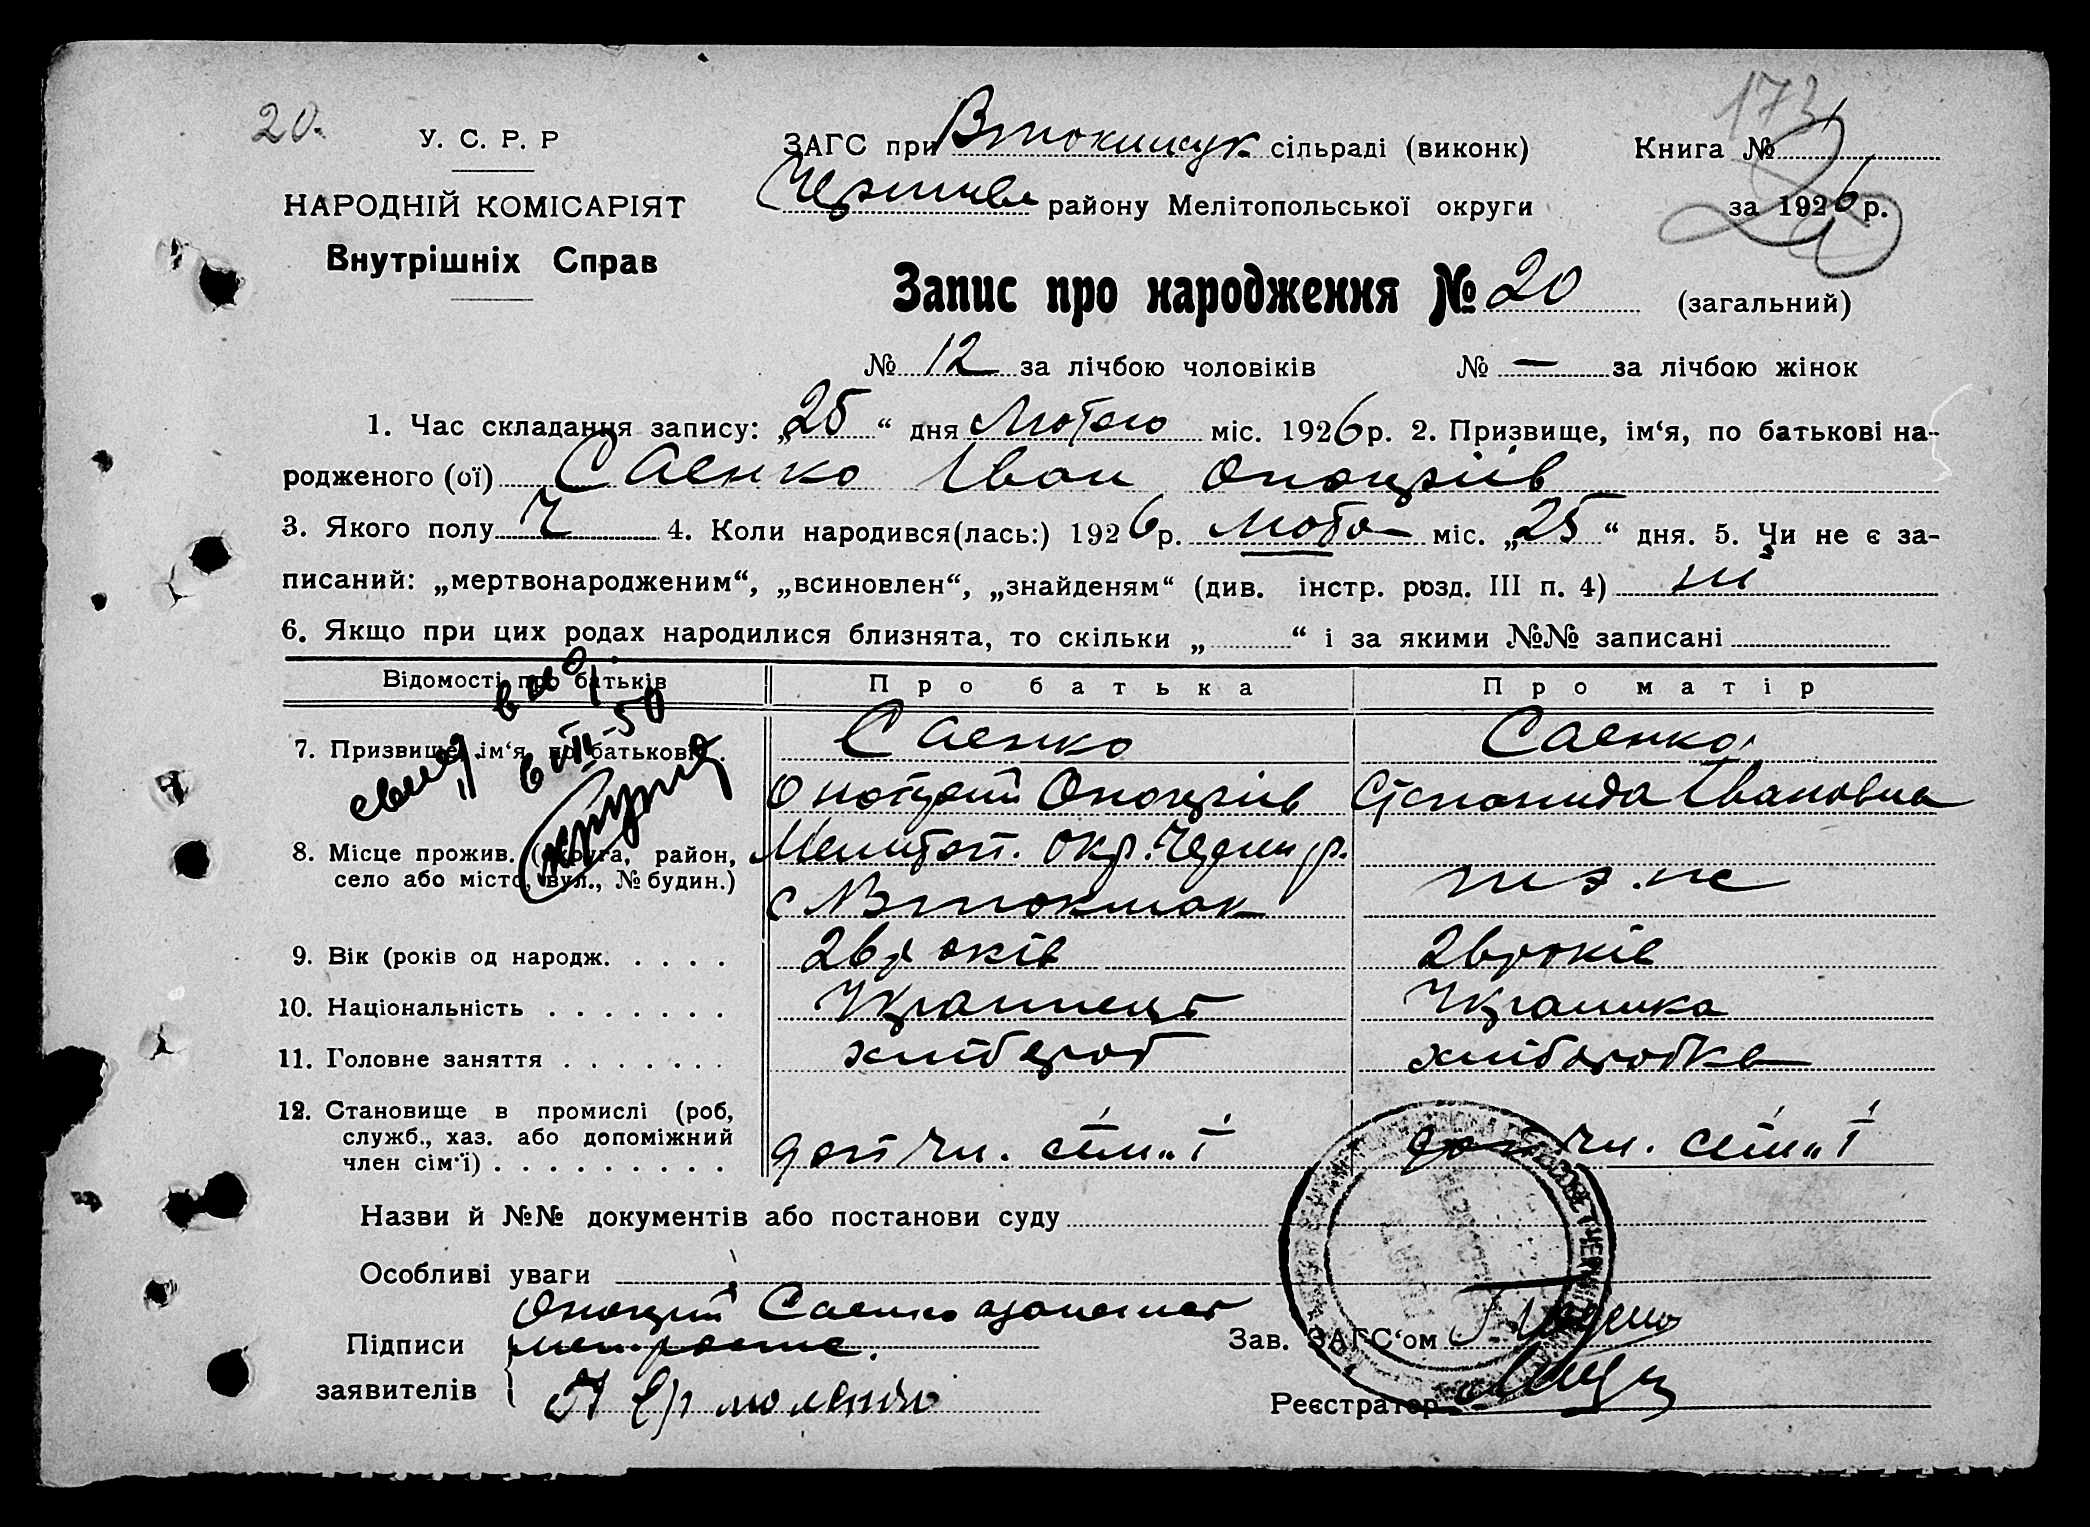 20.
173
У. С. Р. Р
НАРОДНІЙ КОМІСАРІЯТ
Внутрішніх Справ
ЗАГС при сільраді (виконк)
району Мелітопольської округи
Книга №
за 1926 р.
Запис про народження № 20 (загальний)
№ 12 за лічбою чоловіків № — за лічбою жінок
1. Час складання запису: „25“ дня Лютого міс. 1926 р. 2. Призвище, ім‘я, по батькові на-
родженого (ої) Саенко Іван
3. Якого полу Ч 4. Коли народився(лась:) 1926 р. Люто міс. „25“ дня. 5. Чи не є за-
писаний: „мертвонародженим“, „всиновлен“, „знайденям“ (див. інстр. розд. III п. 4) ні
6. Якщо при цих родах народилися близнята, то скільки „ “ і за якими №№ записані
Відомості про батьків Про батька Про матір
7. Призвище, ім‘я, по батькові . Саенко Саенко
Степанида Івановна
8. Місце прожив. (округа, район, Мелитоп. окр. Черни р.
село або місто, вул., № будин.)
9. Вік (років од народж. . . . . 26 років 26 років
10. Національність . . . . . . . Українець Українка
11. Головне заняття . . . . . . . хлібороб хліборобка
12. Становище в промислі (роб,
служб., хаз. або допоміжний
член сім‘ї) . . . . . . . . . доп чл. сем"ї доп чл. сем"ї
VII-50
Назви й №№ документів або постанови суду
Особливі уваги
Саенко
Підписи
заявителів
Зав. ЗАГС‘ом
Реєстратор